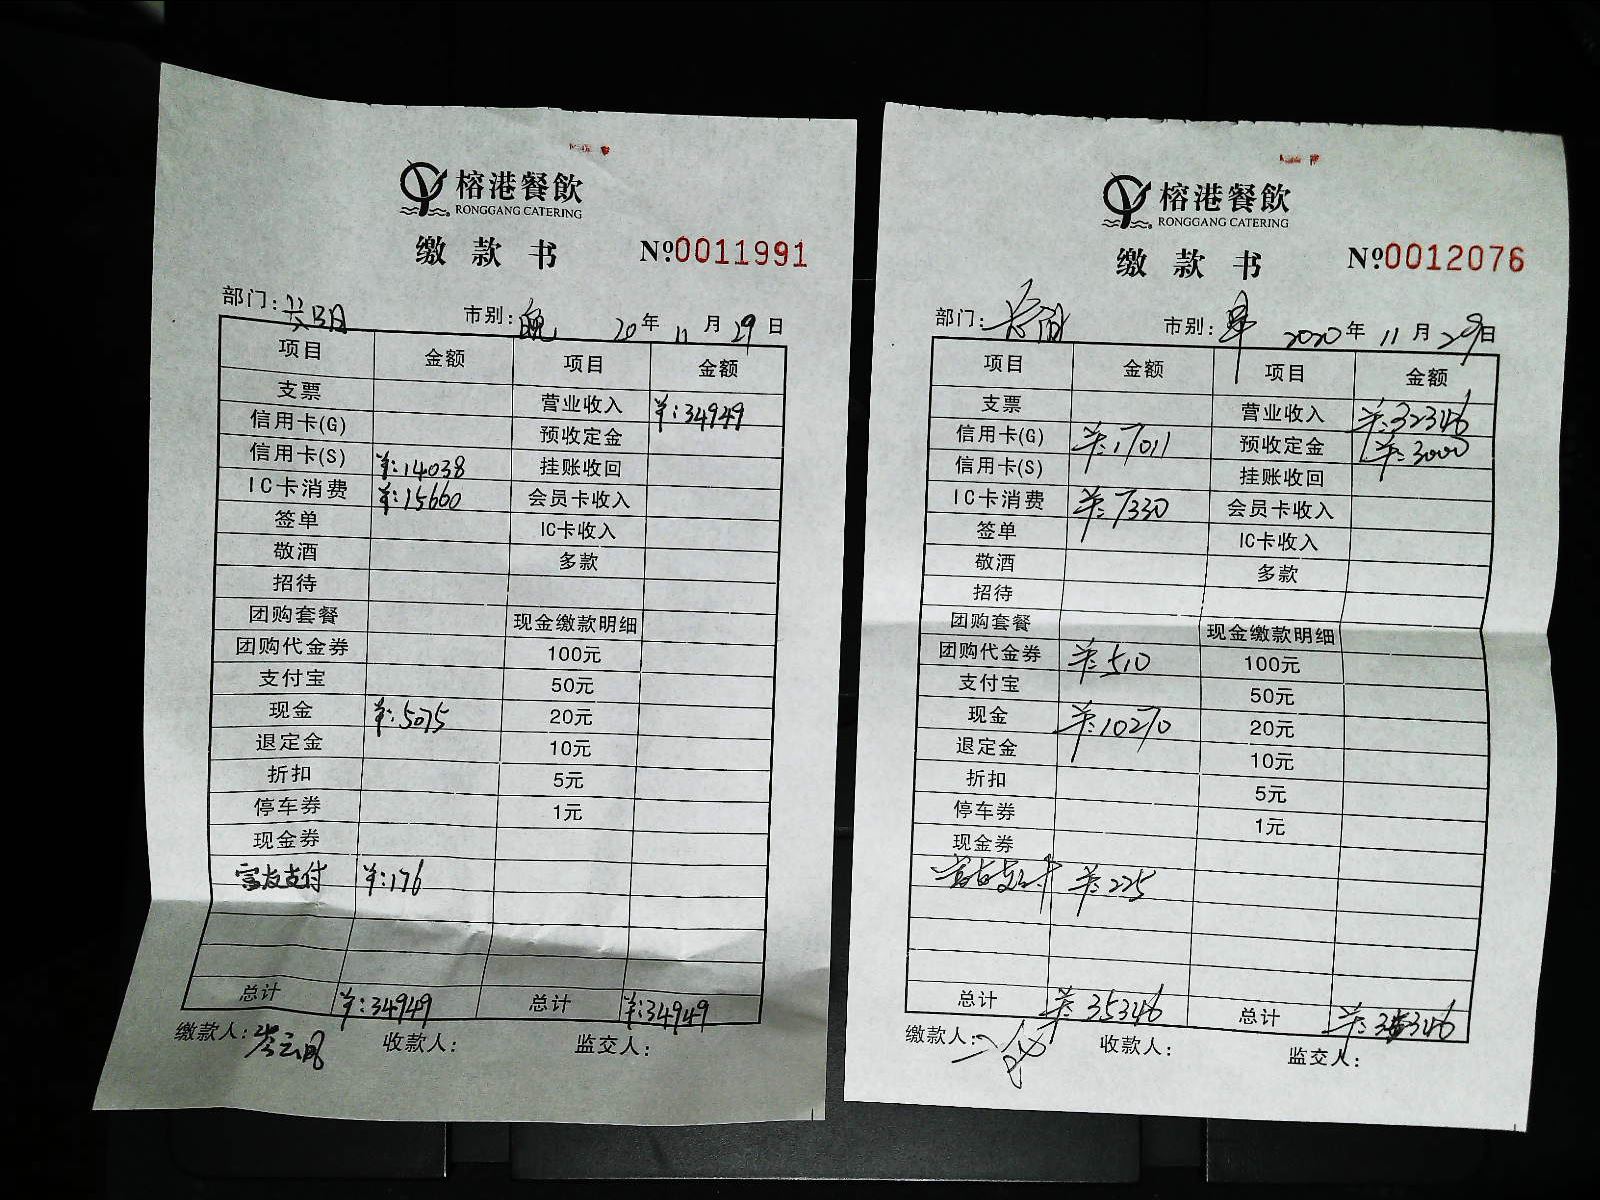 榕港餐飲
RONGGANG CATERING
缴款书 №0011991
部门: 市别:晚 20年11月29日
项目 金额 项目 金额
支票 营业收入 ¥:34949
信用卡(G) 预收定金
信用卡(S) ¥:14038 挂账收回
IC卡消费 ¥:15660 会员卡收入
签单 IC卡收入
敬酒 多款
招待
团购套餐 现金缴款明细
团购代金券 100元
支付宝 50元
现金 ¥:5075 20元
退定金 10元
折扣 5元
停车券 1元
现金券
富友支付 ¥:176
总计 ¥:34949 总计 ¥:34949
缴款人: 收款人: 监交人:
榕港餐飲
RONGGANG CATERING
缴款书 №0012076
部门: 市别:早 2020年11月29日
项目 金额 项目 金额
支票 营业收入 ¥:32346
信用卡(G) ¥:17011 预收定金 ¥:3000
信用卡(S) 挂账收回
IC卡消费 ¥:7330 会员卡收入
签单 IC卡收入
敬酒 多款
招待
团购套餐 现金缴款明细
团购代金券 ¥:510 100元
支付宝 50元
现金 ¥:10270 20元
退定金 10元
折扣 5元
停车券 1元
现金券
富友支付 ¥:225
总计 ¥:35346 总计 ¥:35346
缴款人: 收款人: 监交人: